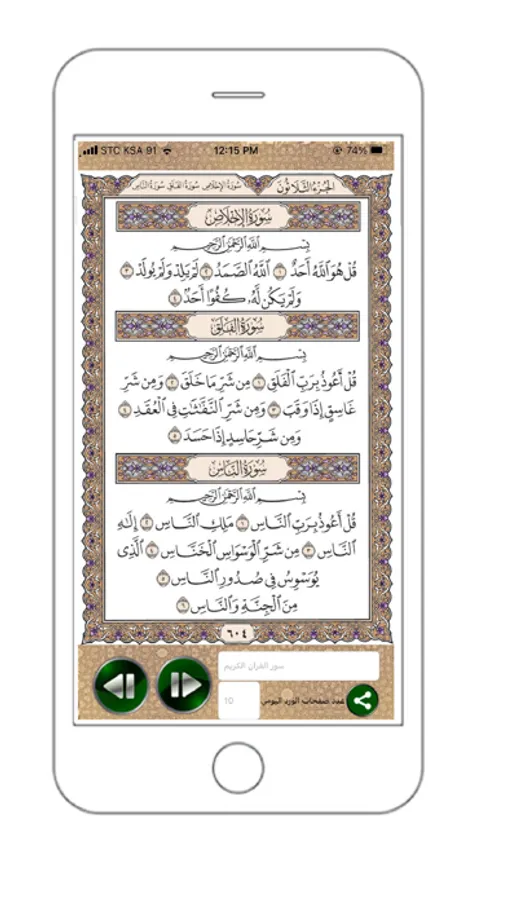 STC KSA 91 12:15 PM 74%
الجُزءُ الثَّلَاثُونَ سُورَةُ الإِخْلَاصِ سُورَةُ الفَلَقِ سُورَةُ النَّاسِ
سُورَةُ الإِخْلَاصِ
بِسْمِ ٱللَّهِ ٱلرَّحْمَٰنِ ٱلرَّحِيمِ
قُلْ هُوَ ٱللَّهُ أَحَدٌ ١ ٱللَّهُ ٱلصَّمَدُ ٢ لَمْ يَلِدْ وَلَمْ يُولَدْ ٣
وَلَمْ يَكُن لَّهُۥ كُفُوًا أَحَدٌۢ ٤
سُورَةُ الفَلَقِ
بِسْمِ ٱللَّهِ ٱلرَّحْمَٰنِ ٱلرَّحِيمِ
قُلْ أَعُوذُ بِرَبِّ ٱلْفَلَقِ ١ مِن شَرِّ مَا خَلَقَ ٢ وَمِن شَرِّ
غَاسِقٍ إِذَا وَقَبَ ٣ وَمِن شَرِّ ٱلنَّفَّٰثَٰتِ فِي ٱلْعُقَدِ ٤
وَمِن شَرِّ حَاسِدٍ إِذَا حَسَدَ ٥
سُورَةُ النَّاسِ
بِسْمِ ٱللَّهِ ٱلرَّحْمَٰنِ ٱلرَّحِيمِ
قُلْ أَعُوذُ بِرَبِّ ٱلنَّاسِ ١ مَلِكِ ٱلنَّاسِ ٢ إِلَٰهِ
ٱلنَّاسِ ٣ مِن شَرِّ ٱلْوَسْوَاسِ ٱلْخَنَّاسِ ٤ ٱلَّذِي
يُوَسْوِسُ فِي صُدُورِ ٱلنَّاسِ ٥
مِنَ ٱلْجِنَّةِ وَٱلنَّاسِ ٦
٦٠٤
سور القران الكريم
عدد صفحات الورد اليومي 10